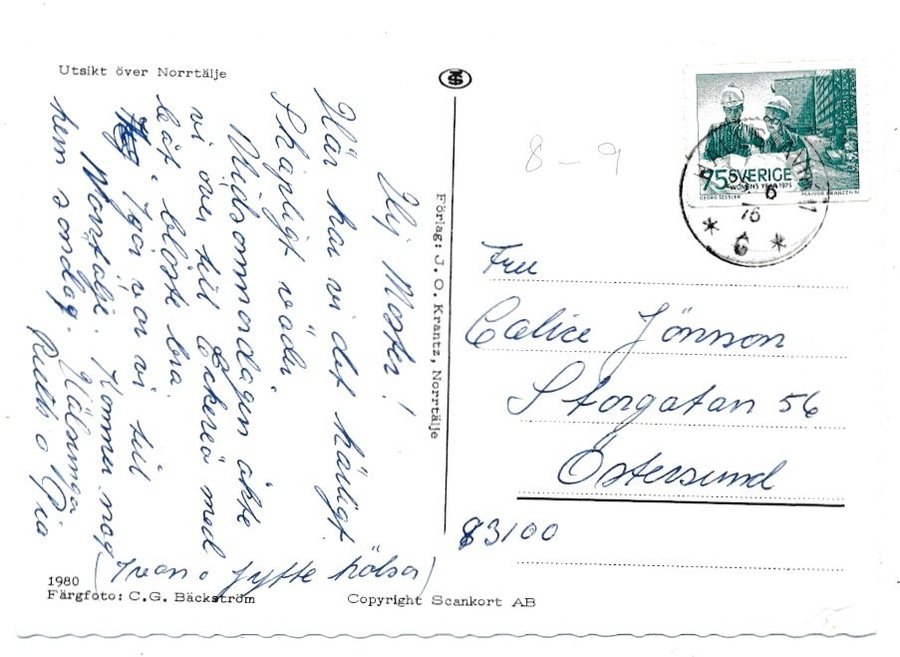 Utsikt över Norrtälje
Hej Moster!
Här har vi det härligt
Skapligt väder
Midsommardagen åkte
vi över till Eckerö med
båt, blåste bra
Igår var vi till
Norrtälje. Kommer nog
hem söndag. Hälsningar
Ruth o Pia
(Ivan o Jytte hälsar)
1980
Färgfoto: C.G. Bäckström
Copyright Scankort AB
Förlag: J. O. Krantz, Norrtälje
8-9
75 SVERIGE
WOMENS YEAR 1975
GEORG SESSLER
MAJVOR FRANZEN SC
6
76
* 6 *
Fru
Calice Jönsson
Storgatan 56
Östersund
83100